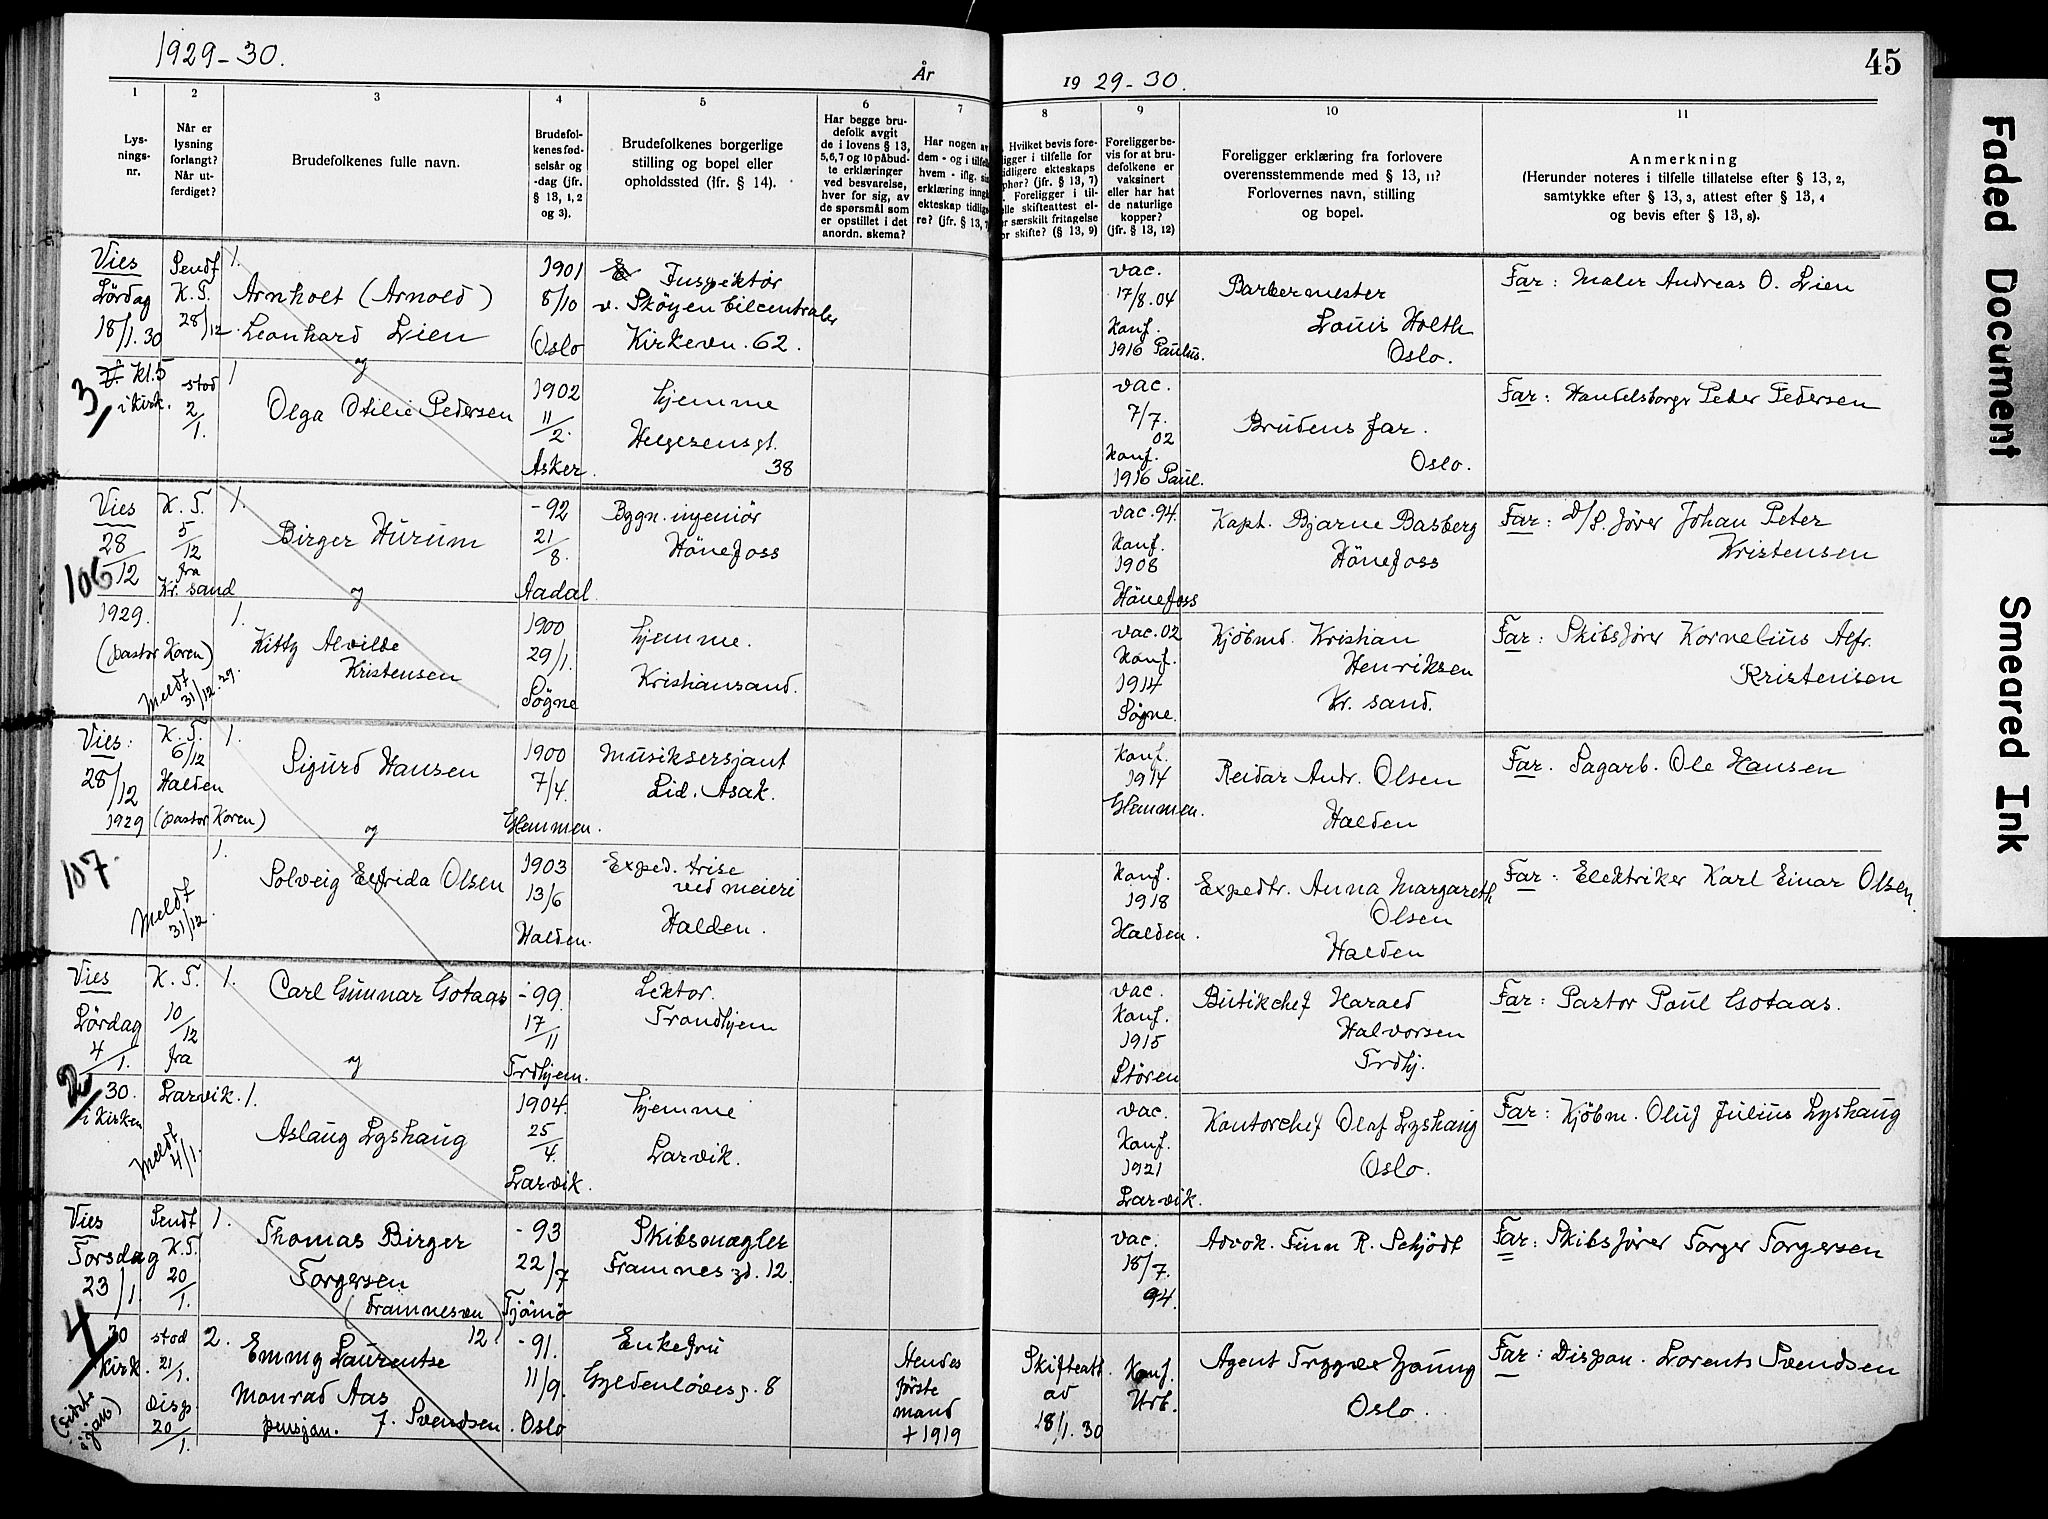 1929-30.
År
19 29-30.
45
1
2
3
4
5
6
7
8
9
10
11
Lys-
nings-
nr.
Når er
lysning
forlangt?
Når ut-
ferdiget?
Brudefolkenes fulle navn.
Brudefol-
kenes fød-
selsår og
-dag (jfr.
§ 13, 1, 2
og 3).
Brudefolkenes borgerlige
stilling og bopel eller
opholdssted (jfr. § 14).
Har begge bru-
defolk avgit
de i lovens § 13,
5,6,7 og 10 påbud-
te erklæringer
ved besvarelse,
hver for sig, av
de spørsmål som
er opstillet i det
anordn. skema?
Har nogen av
dem - og i tilfelle
hvem - iflg. sin
erklæring inngå
ekteskap tidlige
re? (jfr. § 13, 7
Hvilket bevis fore-
ligger i tilfelle for
tidligere ekteskaps
ophør? (jfr. § 13, 7)
Foreligger i til-
felle skifteattest el-
ler særskilt fritagelse
for skifte? (§ 13, 9)
Foreligger be-
vis for at bru-
defolkene er
vaksinert
eller har hat
de naturlige
kopper?
(jfr. § 13, 12)
Foreligger erklæring fra forlovere
overensstemmende med § 13, 11?
Forlovernes navn, stilling
og bopel.
Anmerkning
(Herunder noteres i tilfelle tillatelse efter § 13, 2,
samtykke efter § 13, 3, attest efter § 13, 4
og bevis efter § 13, 8).
Vies
Lördag
18/1.30
kl.5
i kirk.
3
Sendt
K.T.
28/12.
1.
Arnholt (Arnold)
Leonhard Lien
og
1901
8/10
Oslo
Inspektör
v. Sköyen bilcentraler
Kirkevn. 62.
vac.
17/8.04
Konf.
1916 Paulus.
Barbermester
Louis Holth
Oslo.
Far: Maler Andreas O. Lien
stod
2/1.
1
Olga Otilie Pedersen
1902
11/2.
Asker.
hjemme
Helgesensgt.
38
vac.
7/7.
02
Konf.
1916 Paul.
Brudens far.
Oslo.
Far: Handelsborgr Peder Pedersen
Vies
28/12
1929.
106
(pastor Koren)
Meldt
31/12.29.
K.T.
5/12
fra
Kr.sand
1.
Birger Hurum
og
-92
21/8.
Aadal
Bygn.ingeniör
Hönefoss
vac.94.
Konf.
1908
Hönefoss
Kapt. Bjarne Basberg
Hönefoss
Far: D/S.förer Johan Peter
Kristensen
1.
Kitty Alvilde
Kristensen
1900
29/1.
Søgne
hjemme.
Kristiansand.
vac.02
Konf.
1914
Søgne.
Kjöbmd. Kristian
Henriksen
Kr. sand.
Far: Skibsförer Kornelius Alfr.
Kristensen
Vies:
28/12
1929
107.
K.T.
6/12
Halden
(pastor Koren)
1.
Sigurd Hansen
og
1900
7/4.
Glemmen.
Musiksersjant
Lid. Asak.
Konf.
1914
Glemmen.
Reidar Andr. Olsen
Halden
Far. Sagarb. Ole Hansen
Meldt
31/12.
1.
Solveig Elfrida Olsen
1903
13/6
Halden.
Exped.trise
ved meieri
Halden.
Konf.
1918
Halden.
Expedtr. Anna Margareth
Olsen
Halden
Far: Elektriker Karl Einar Olsen.
Vies
Lördag
4/1.
30.
i kirken
2
K.T.
10/12
fra
Larvik.
1.
Carl Gunnar Gotaas
og
-99.
17/11
Trdhjem.
Lektor.
Trondhjem
vac.
Konf.
1915
Stören
Butikchef Harald
Halvorsen
Trdhj.
Far: Pastor Paul Gotaas.
Meldt
4/1.
1.
Aslaug Lyshaug
1904.
25/4.
Larvik.
hjemme
Larvik.
vac.
Konf.
1921
Larvik.
Kontorchef Olaf Lyshaug
Oslo.
Far: Kjöbm. Oluf Julius Lyshaug
Vies
Torsdag
23/1
30
kirk.
4
Sendt
K.T.
20/1.
1.
Thomas Birger
Torgersen
(Framnesvn
12)
-93
22/7
Tjömö
Skibsmægler
Framnes gd. 12.
vac.
18/7.
94.
Advok. Finn R. Schjödt
Far: Skibsförer Torger Torgersen
stod
21/1.
disp.
20/1.
2.
Emmy Laurentse
Monrad Aas
pensjon. f. Svendsen.
-91.
11/9.
Oslo
Enkefru
Gyldenlövesg. 8
Hendes
förste
mand
+ 1919
Skifteatt.
av
18/1.30
Konf.
Urb.
Agent Trygve Young
Oslo.
Far: Dispon. Lorents Svendsen
Faded Document
Smeared Ink